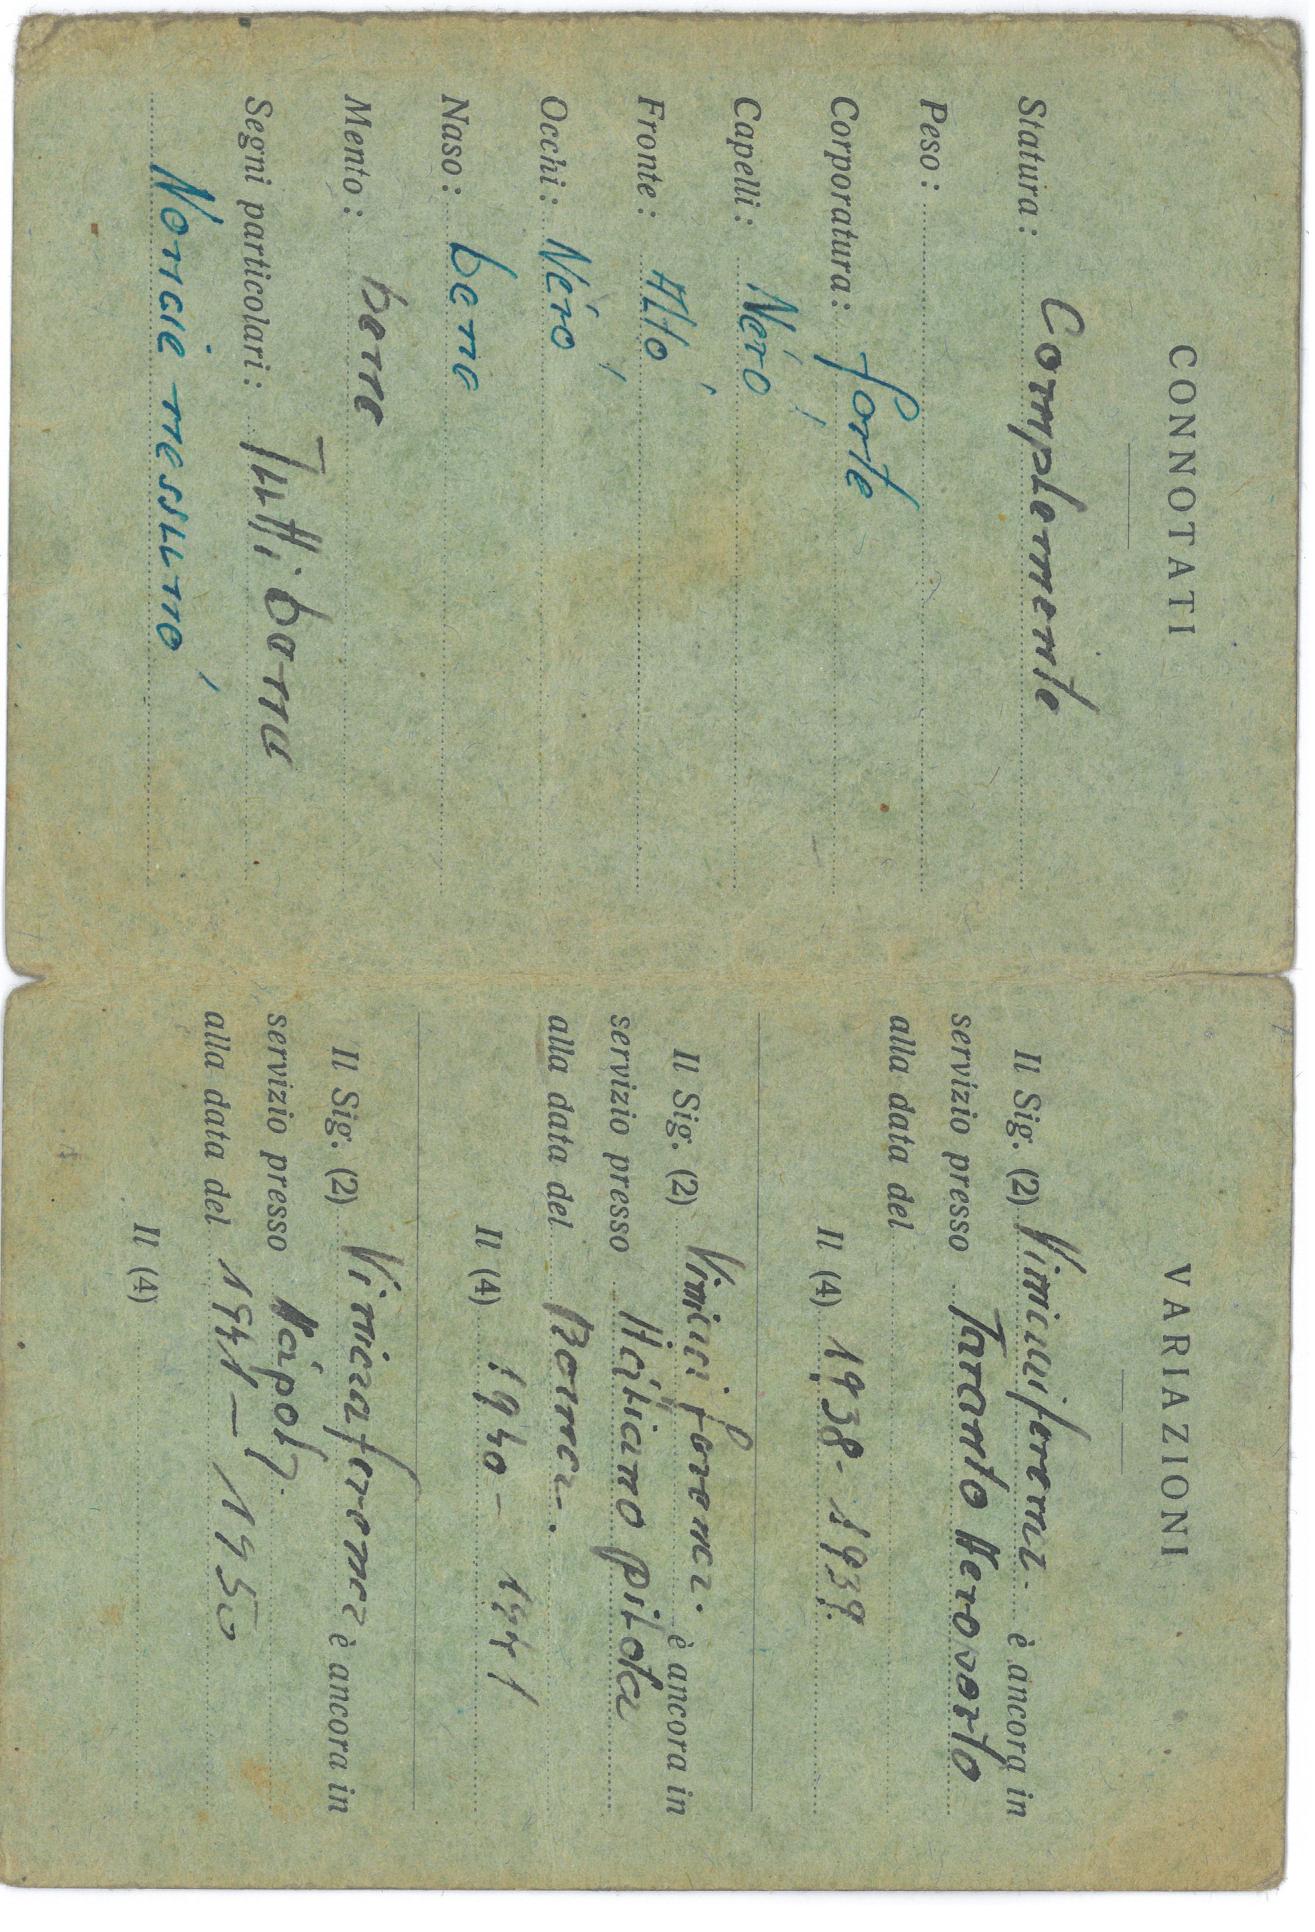 CONNOTATI
Statura: Complemente
Peso:
Corporatura: forte
Capelli: Néro
Fronte: Altó
Occhi: Néro
Naso: bene
Mento: bene
Segni particolari: Tutti bona
Noncié nessunó
VARIAZIONI
Il Sig. (2) è ancora in
servizio presso Taranto
alla data del
Il (4) 1938 - 1939.
Il Sig. (2) è ancora in
servizio presso pilota
alla data del Roma.
Il (4) 1940 - 1941
Il Sig. (2) è ancora in
servizio presso Nápoli.
alla data del 1941 - 1950
Il (4)